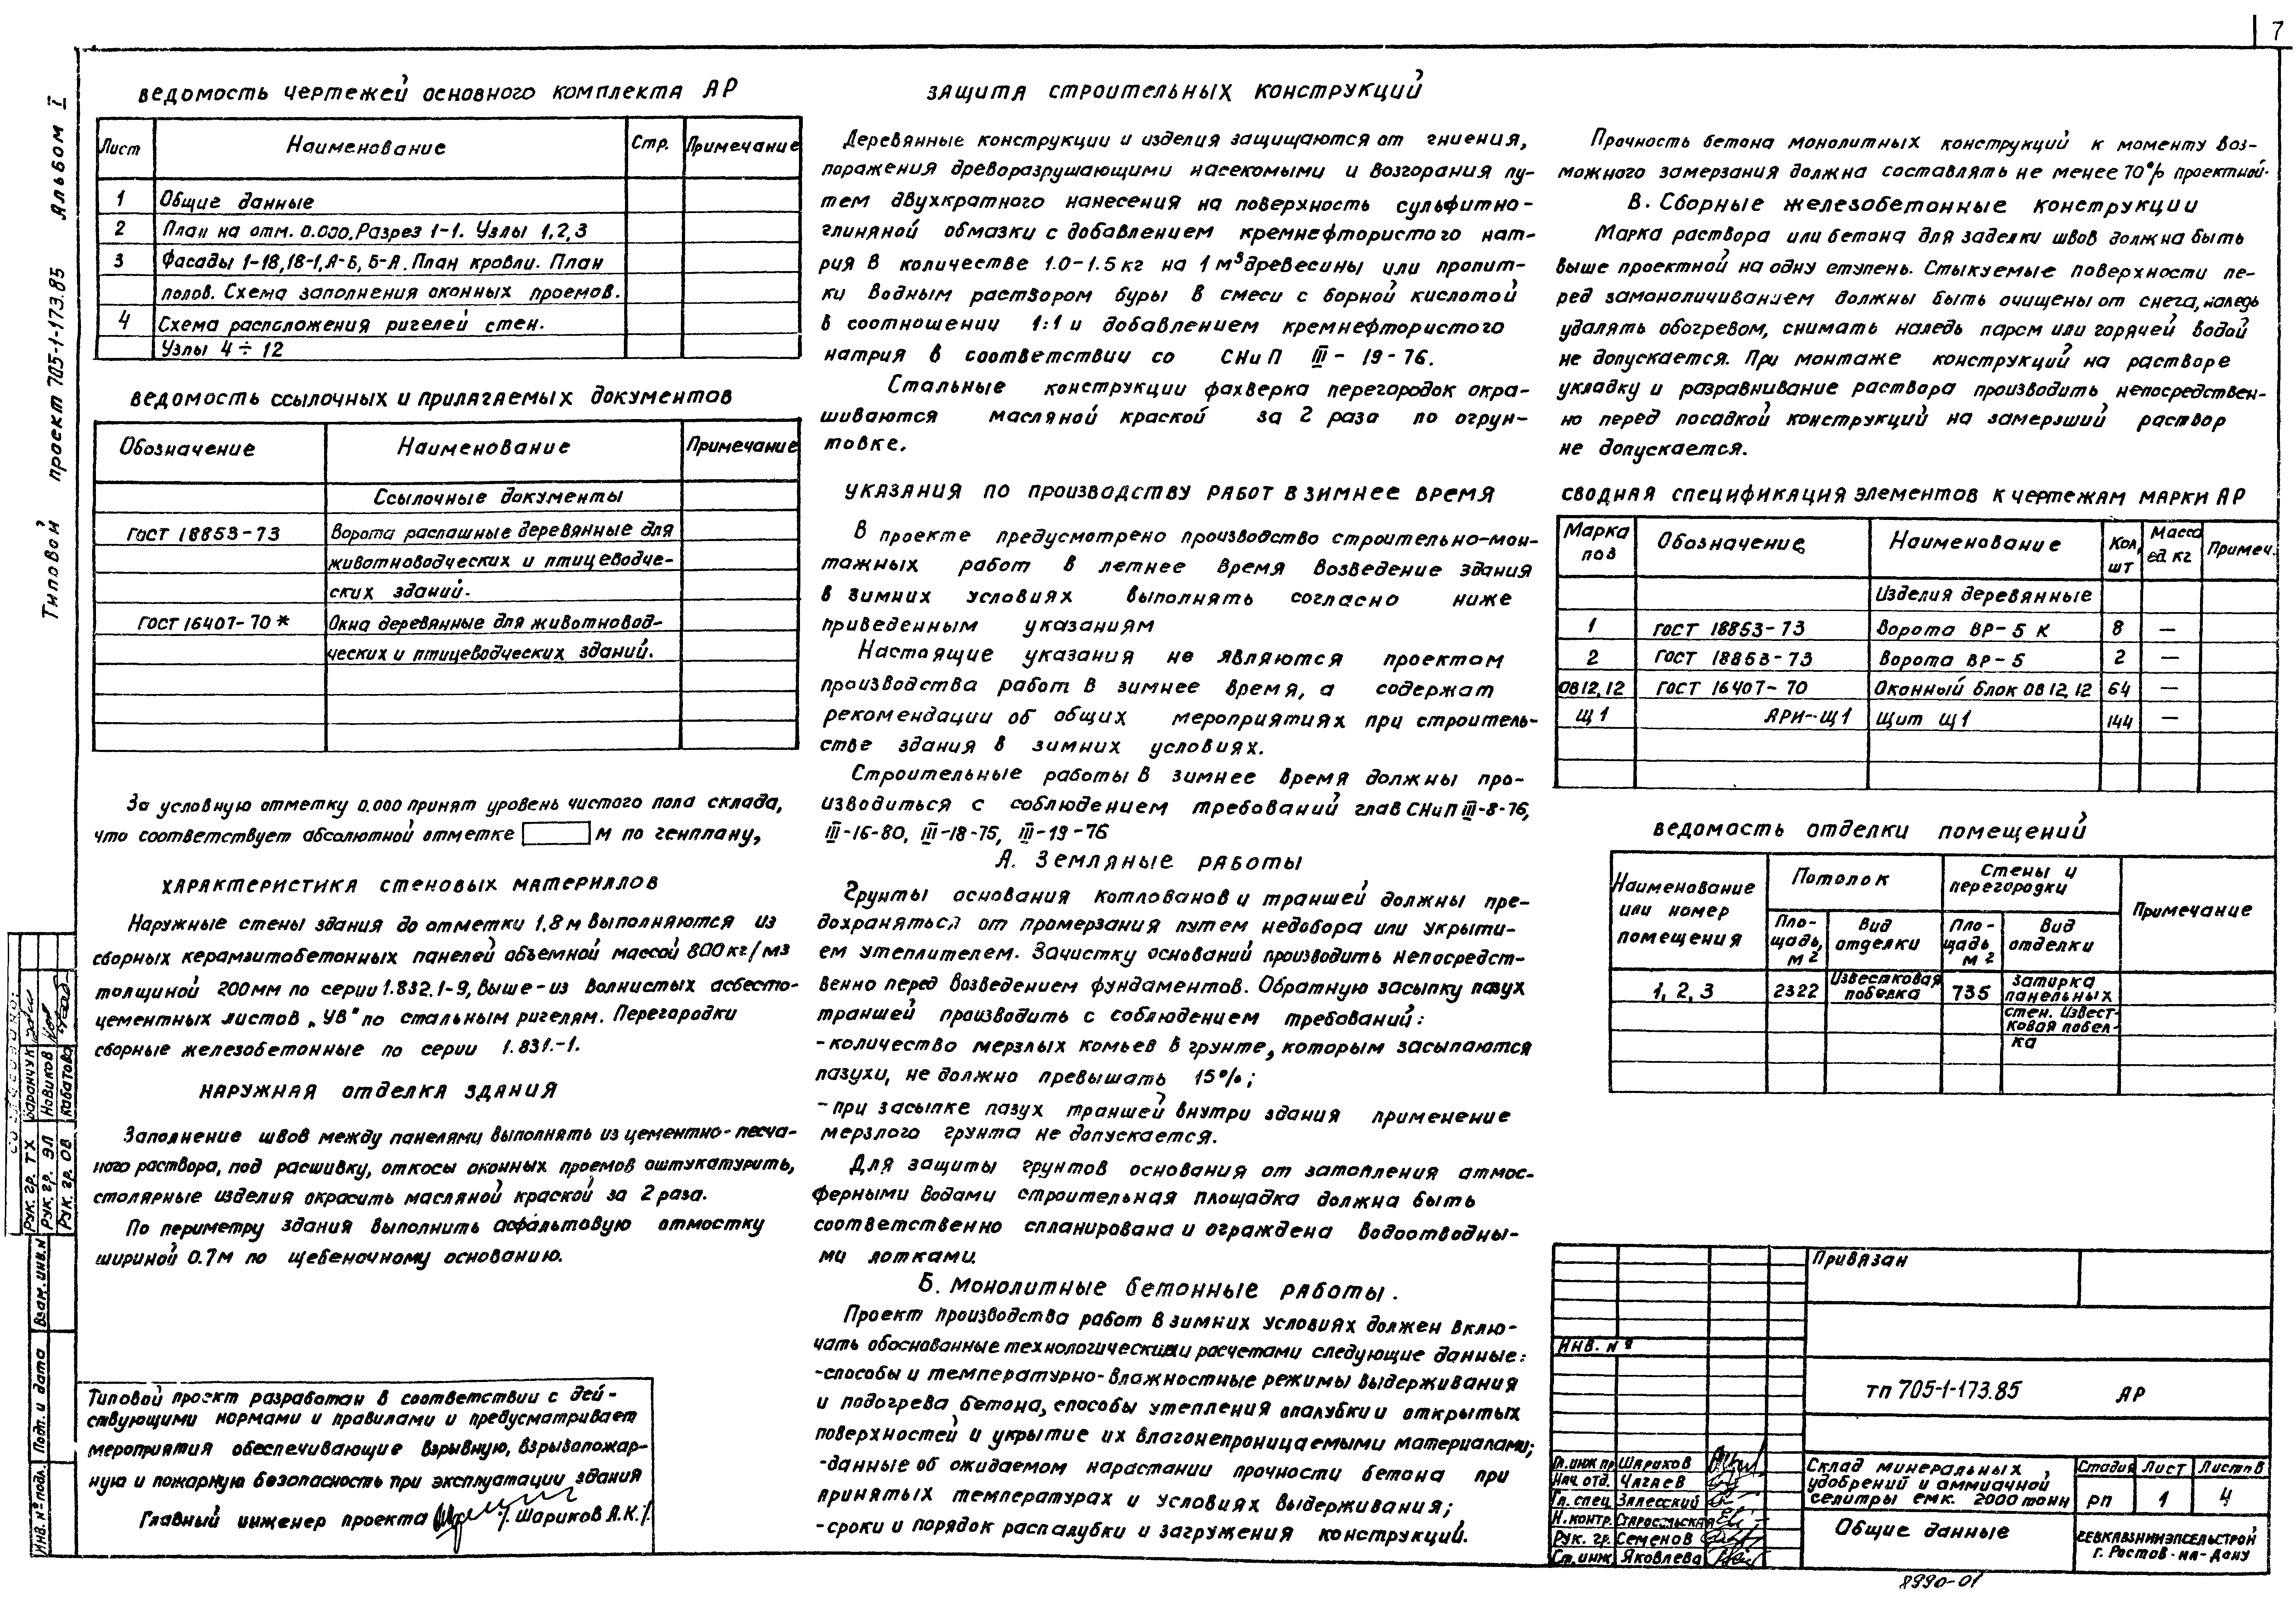 7
Типовой проект 705-1-173.85 Альбом I
ВЕДОМОСТЬ ЧЕРТЕЖЕЙ ОСНОВНОГО КОМПЛЕКТА АР
Лист Наименование Стр. Примечание
1 Общие данные
2 План на отм. 0.000. Разрез 1-1. Узлы 1,2,3
3 Фасады 1-18, 18-1, А-Б, Б-А. План кровли. План
полов. Схема заполнения оконных проемов.
4 Схема расположения ригелей стен.
Узлы 4 ÷ 12
ВЕДОМОСТЬ ССЫЛОЧНЫХ И ПРИЛАГАЕМЫХ ДОКУМЕНТОВ
Обозначение Наименование Примечание
Ссылочные документы
ГОСТ 18853-73 Ворота распашные деревянные для
животноводческих и птицеводче-
ских зданий.
ГОСТ 16407-70* Окна деревянные для животновод-
ческих и птицеводческих зданий.
За условную отметку 0.000 принят уровень чистого пола склада,
что соответствует абсолютной отметке м по генплану,
ХАРАКТЕРИСТИКА СТЕНОВЫХ МАТЕРИАЛОВ
Наружные стены здания до отметки 1,8 м выполняются из
сборных керамзитобетонных панелей объемной массой 800 кг/м3
толщиной 200мм по серии 1.832.1-9, выше - из волнистых асбесто-
цементных листов „УВ" по стальным ригелям. Перегородки
сборные железобетонные по серии 1.831.-1.
НАРУЖНАЯ ОТДЕЛКА ЗДАНИЯ
Заполнение швов между панелями выполнять из цементно-песча-
ного раствора, под расшивку, откосы оконных проемов оштукатурить,
столярные изделия окрасить масляной краской за 2 раза.
По периметру здания выполнить асфальтовую отмостку
шириной 0.7м по щебеночному основанию.
Типовой проект разработан в соответствии с дей-
ствующими нормами и правилами и предусматривает
мероприятия обеспечивающие взрывную, взрывопожар-
ную и пожарную безопасность при эксплуатации здания
Главный инженер проекта /Шариков А.К./
ЗАЩИТА СТРОИТЕЛЬНЫХ КОНСТРУКЦИЙ
Деревянные конструкции и изделия защищаются от гниения,
поражения древоразрушающими насекомыми и возгорания пу-
тем двухкратного нанесения на поверхность сульфитно-
глиняной обмазки с добавлением кремнефтористого нат-
рия в количестве 1.0-1.5 кг на 1 м³ древесины или пропит-
ки водным раствором буры в смеси с борной кислотой
в соотношении 1:1 и добавлением кремнефтористого
натрия в соответствии со СНиП III - 19-76.
Стальные конструкции фахверка перегородок окра-
шиваются масляной краской за 2 раза по огрун-
товке.
УКАЗАНИЯ ПО ПРОИЗВОДСТВУ РАБОТ В ЗИМНЕЕ ВРЕМЯ
В проекте предусмотрено производство строительно-мон-
тажных работ в летнее время возведение здания
в зимних условиях выполнять согласно ниже
приведенным указаниям
Настоящие указания не являются проектом
производства работ в зимнее время, а содержат
рекомендации об общих мероприятиях при строитель-
стве здания в зимних условиях.
Строительные работы в зимнее время должны про-
изводиться с соблюдением требований глав СНиП III-8-76,
III-16-80, III-18-75, III-19-76
А. Земляные работы
Грунты основания котлованов и траншей должны пре-
дохраняться от промерзания путем недобора или укрыти-
ем утеплителем. Зачистку оснований производить непосредст-
венно перед возведением фундаментов. Обратную засыпку пазух
траншей производить с соблюдением требований:
-количество мерзлых комьев в грунте, которым засыпаются
пазухи, не должно превышать 15%;
-при засыпке пазух траншей внутри здания применение
мерзлого грунта не допускается.
Для защиты грунтов основания от затопления атмос-
ферными водами строительная площадка должна быть
соответственно спланирована и ограждена водоотводны-
ми лотками.
Б. Монолитные бетонные работы.
Проект производства работ в зимних условиях должен вклю-
чать обоснованные технологическими расчетами следующие данные:
-способы и температурно-влажностные режимы выдерживания
и подогрева бетона, способы утепления опалубки и открытых
поверхностей и укрытие их влагонепроницаемыми материалами;
-данные об ожидаемом нарастании прочности бетона при
принятых температурах и условиях выдерживания;
-сроки и порядок распалубки и загружения конструкций.
Прочность бетона монолитных конструкций к моменту воз-
можного замерзания должна составлять не менее 70% проектной.
В. Сборные железобетонные конструкции
Марка раствора или бетона для заделки швов должна быть
выше проектной на одну ступень. Стыкуемые поверхности пе-
ред замоноличиванием должны быть очищены от снега, наледь
удалять обогревом, снимать наледь паром или горячей водой
не допускается. При монтаже конструкций на растворе
укладку и разравнивание раствора производить непосредствен-
но перед посадкой конструкций на замерзший раствор
не допускается.
СВОДНАЯ СПЕЦИФИКАЦИЯ ЭЛЕМЕНТОВ К ЧЕРТЕЖАМ МАРКИ АР
Марка поз Обозначение Наименование Кол, шт Масса ед. кг Примеч.
Изделия деревянные
1 ГОСТ 18853-73 Ворота ВР-5 К 8 —
2 ГОСТ 18853-73 Ворота ВР-5 2 —
0812,12 ГОСТ 16407-70 Оконный блок 0812,12 64 —
Щ1 АРИ-Щ1 Щит Щ1 144 —
ВЕДОМОСТЬ ОТДЕЛКИ ПОМЕЩЕНИЙ
Наименование или номер помещения Потолок Стены и перегородки Примечание
Пло-щадь, м2 Вид отделки Пло-щадь, м2 Вид отделки
1, 2, 3 2322 Известковая побелка 735 Затирка
панельных
стен. Извест-
ковая побел-
ка
Привязан
Инв. №
ТП 705-1-173.85 АР
Гл. инж. пр. Шариков
Нач. отд. Чагаев
Гл. спец. Залесский
Н. контр. Старосельская
Рук. гр. Семенов
Ст. инж. Яковлева
Склад минеральных
удобрений и аммиачной
селитры емк. 2000 тонн
Стадия Лист Листов
РП 1 4
Общие данные
СЕВКАВЗНИИЭПСЕЛЬСТРОЙ
г. Ростов-на-Дону
8990-01
Рук. гр. ТХ Баранчук
Рук. гр. ЭЛ Новиков
Рук. гр. ОВ Кабатова
Взам. инв. №
Подп. и дата
Инв. № подл.